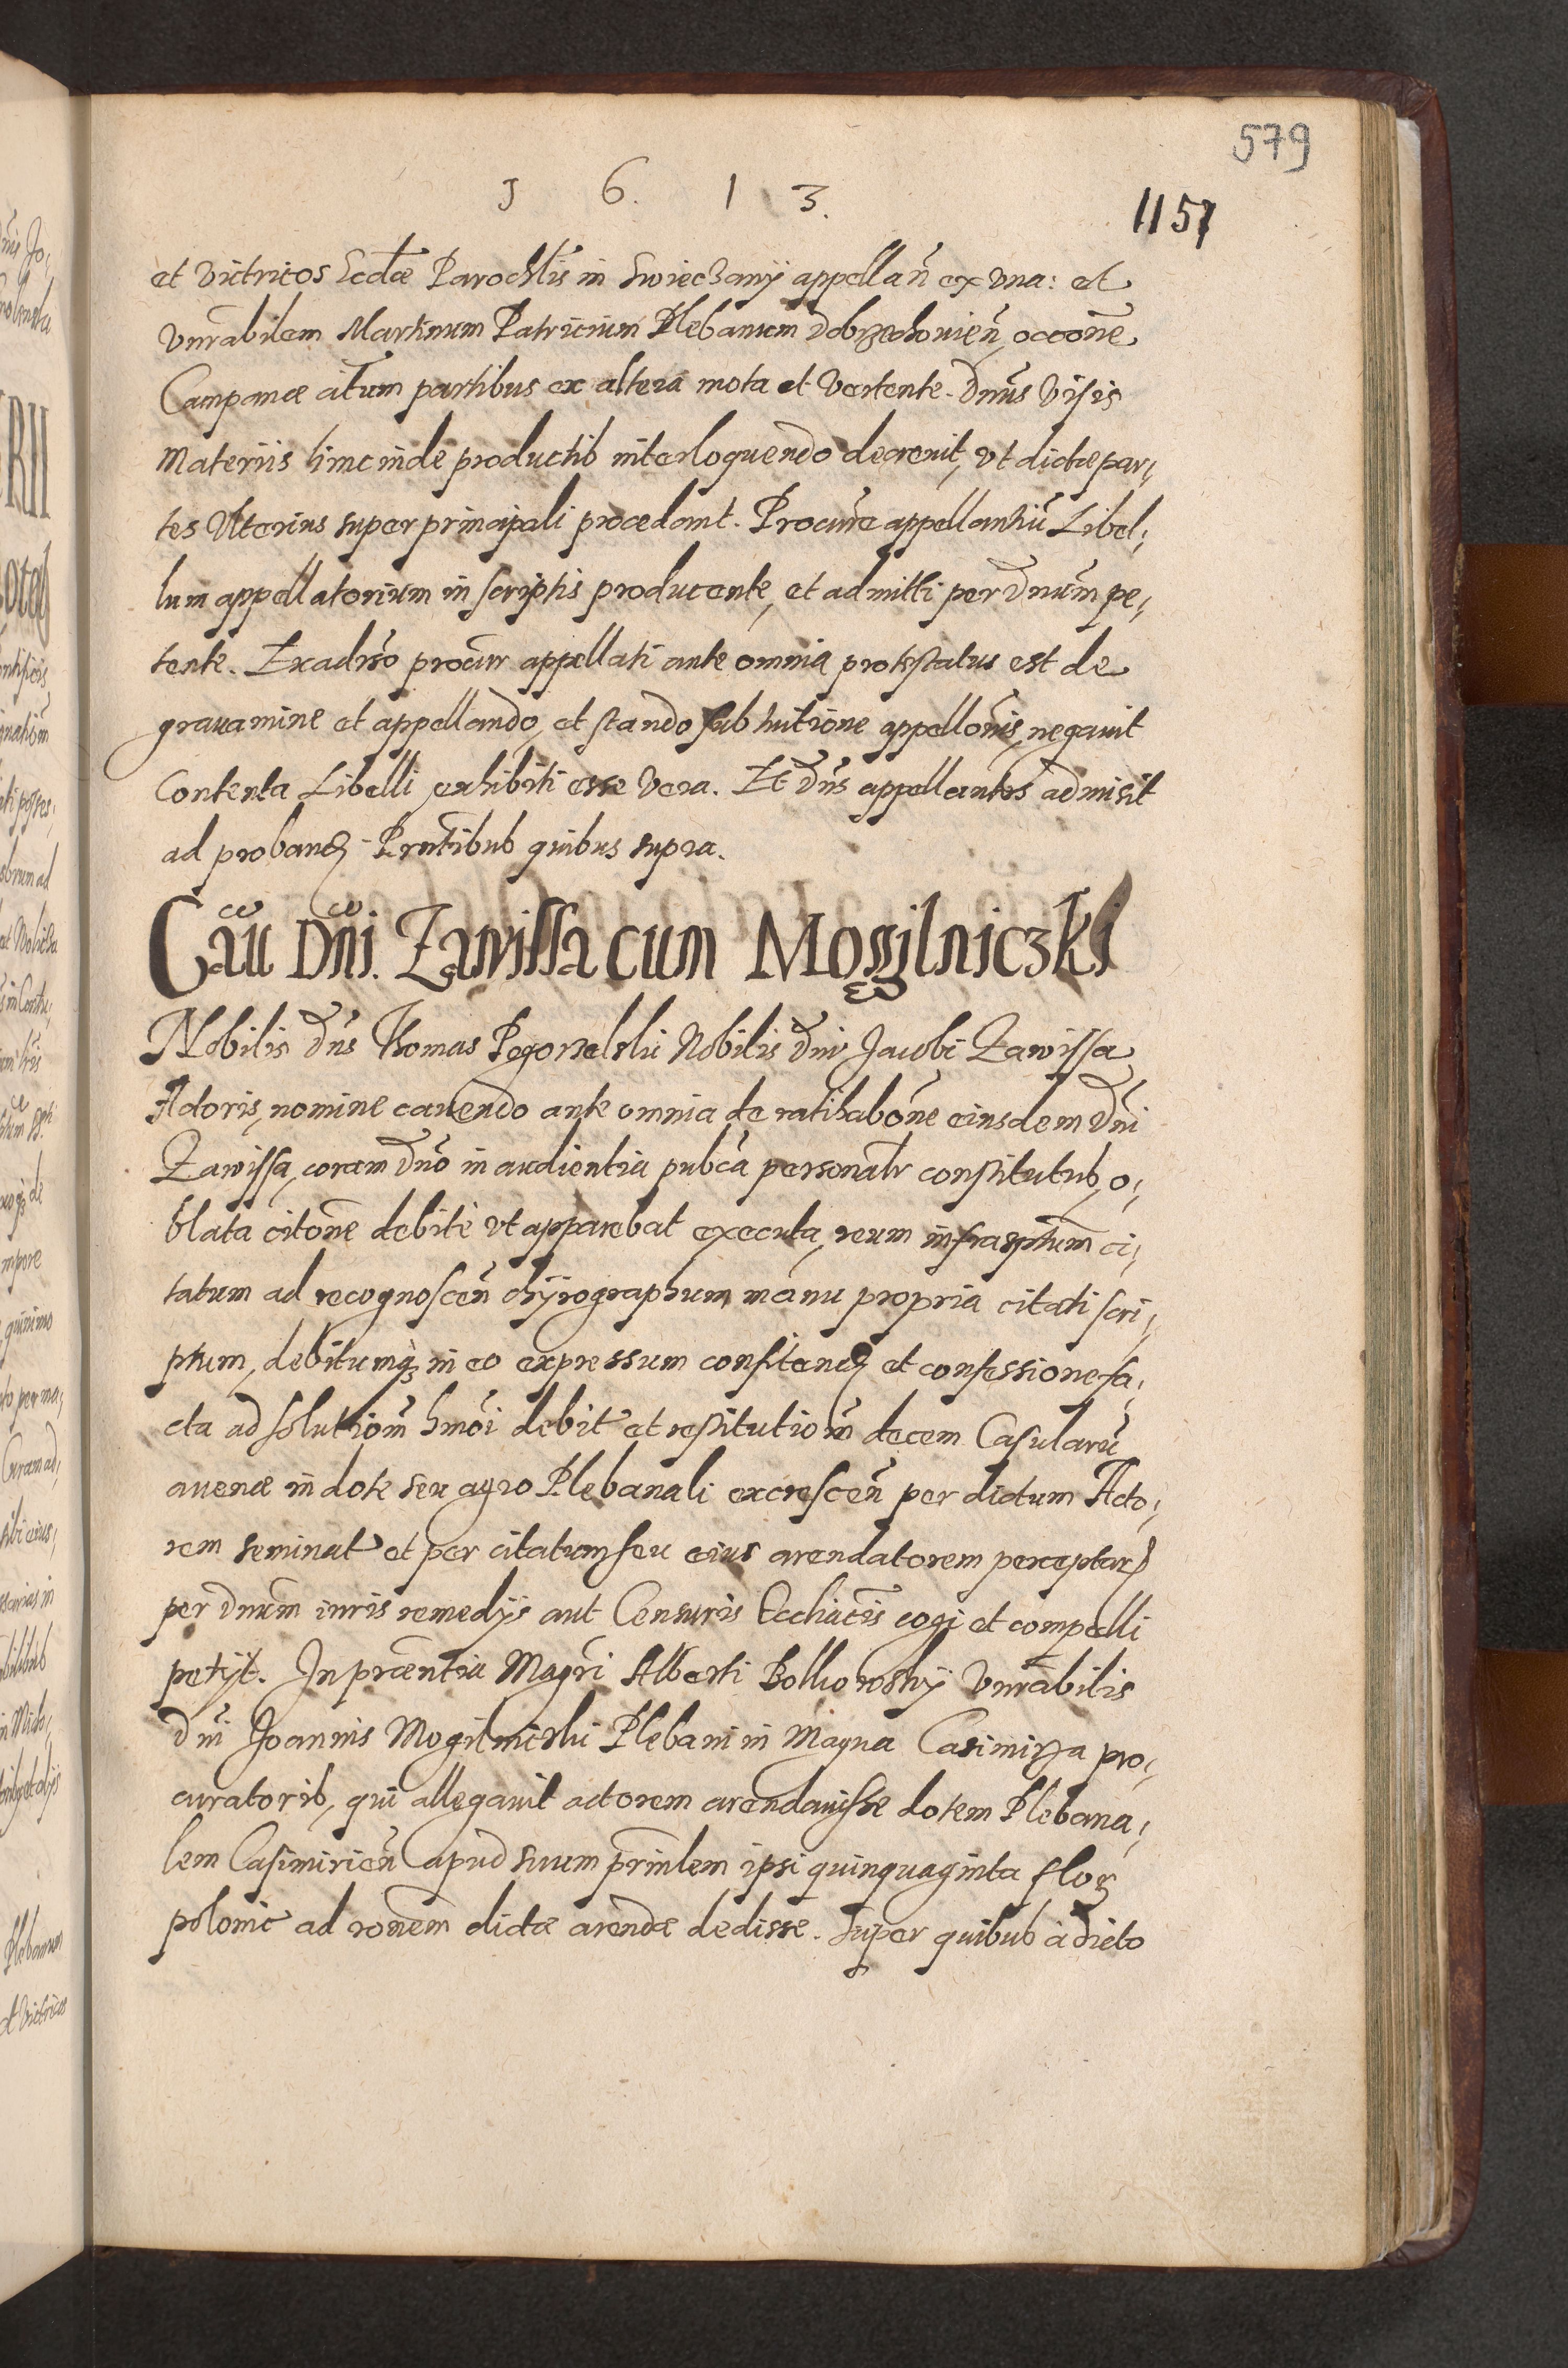 579
1 6. 1 3.
1157
et victricos Eccłæ Parochłis in Swiechanÿ appellan̄ ex vna: et
vnrabilem Martinum Patricium Plebanum Dobrzechouien̄, occōne
Campanæ ałum partibus ex altera mota et vertente. Dnūs visis
Materiis hinc inde productib interloquendo decreuit, vt dictæ par,
tes vlterius super principali procedant. Procure appellantiū Libel,
lum appellatorium in scriptis producente, et admitti per Dnūm pe,
tente. Ex adrso procur appellati ante omnia protestatus est de
grauamine et appellando, et stando sub tuitione appellōnis, negauit
Contenta Libelli exhibiti esse vera. Et Dnūs appellantes admisit
ad proband. Prntibus quibus supra.
Cau Dni. Zawissa cum Mogilniczki
Nobilis Dnūs Thomas Pogorzelski Nobilis Dni Jacobi Zawissa
Actoris, nomine cauendo ante omnia de ratihabōne eiusdem Dni
Zawissa, coram Dnō in audientia pubca personalr constitutus, o,
blata citōne debitè vt apparebat executa, reum infrasptum ci,
tatum ad recognoscen̄ chÿrographum manu propria citati scri,
ptum, debitumq; in eo expressum confitend et confessione fa,
cta ad solutiōn̄ hmōi debit et restitutiōn̄ decem Casularū
auenæ in dote seu agro Plebanali excrescen̄ per dictum Acto,
rem seminat et per citatum seu eius arendatorem perceptar
per Dnūm iuris remedÿs aut Censuris Ecclìacis cogi et compelli
petÿt. In præntia Magri Alberti Bolkowskÿ vnrabilis
Dni Joannis Mogilnicski Plebani in Magna Casimirza pro,
curatoris, qui allegauit actorem arendauisse dotem Plebana,
lem Casimirien̄ apud suum prinlem ipsi quinquaginta flor
polonic ad ronem dictæ arendæ dedisse. Super quibus à dicto